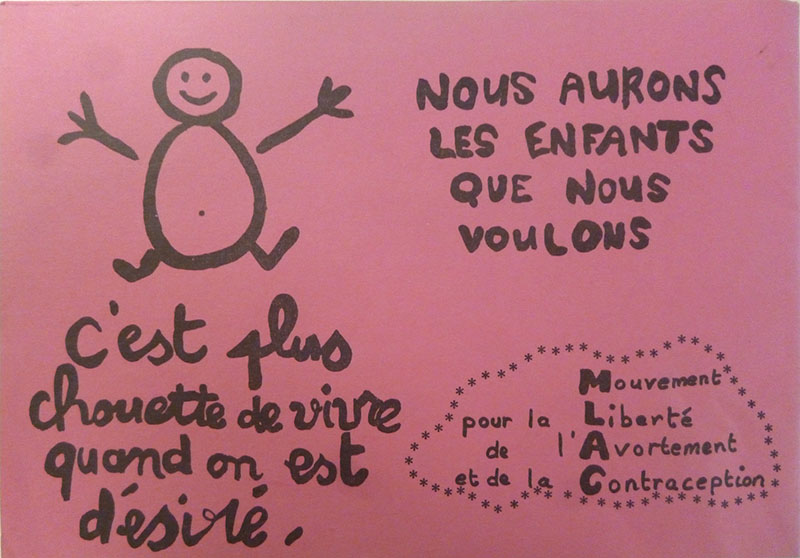 NOUS AURONS
LES ENFANTS
QUE NOUS
VOULONS
c'est plus
chouette de vivre
quand on est
désiré.
Mouvement
pour la Liberté
de l'Avortement
et de la Contraception